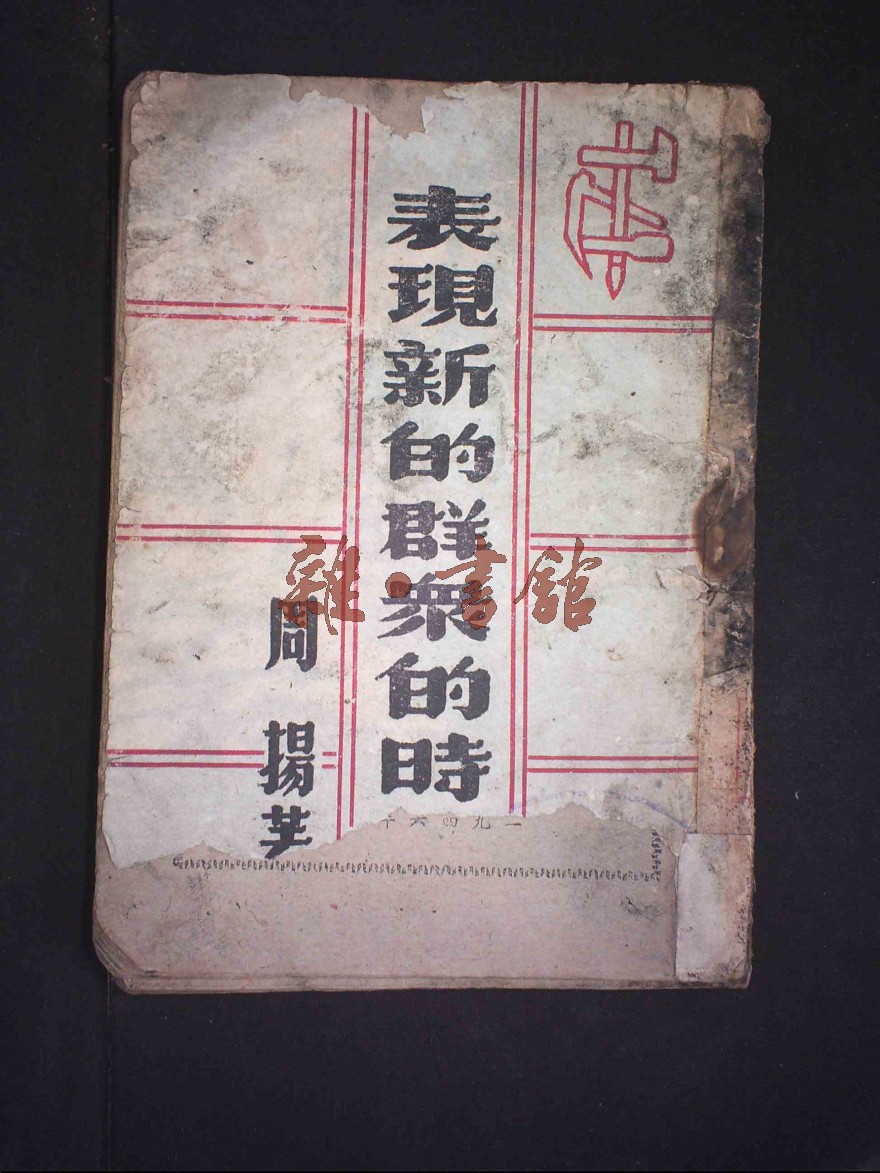 表現新的群衆的時
周揚
一九四六年
雜·書館